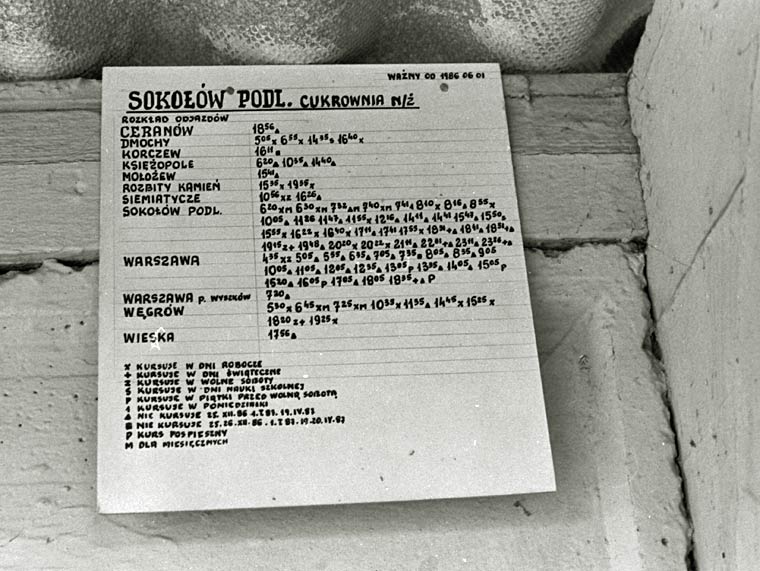 WAŻNY OD 1986 06 01
SOKOŁÓW PODL. CUKROWNIA N/Ż
ROZKŁAD ODJAZDÓW
CERANÓW 18⁵⁶▲
DMOCHY 5⁰⁵x 6⁵⁵x 14³⁵s 16⁴⁰x
KORCZEW 16¹¹■
KSIĘŻOPOLE 6²⁰▲ 10³⁵▲ 14⁴⁰▲
MOŁOŻEW 15⁴¹▲
ROZBITY KAMIEŃ 15³⁵x 19³⁵x
SIEMIATYCZE 10⁵⁶xz 16²⁶▲
SOKOŁÓW PODL. 6²⁰xM 6³⁰xM 7³²▲M 7⁴⁰xM 7⁴¹▲ 8¹⁰x 8¹⁶▲ 8⁵⁵x
10⁰⁵▲ 11²⁶ 11⁴⁷▲ 11⁵⁵x 12¹⁶▲ 14¹¹▲ 14⁴¹ 15⁴⁷▲ 15⁵⁰▲
15⁵⁵x 16²²x 16⁴⁰x 17¹¹▲ 17⁴¹ 17⁵⁵x 18³¹+▲ 18⁴¹▲ 18⁵¹+▲
19¹⁵z+ 19⁴⁸▲ 20²⁰x 20²²x 21¹¹▲ 22³¹+▲ 23¹¹▲ 23²⁶+▲
WARSZAWA 4³⁵xz 5⁰⁵▲ 5⁵⁵▲ 6³⁵▲ 7⁰⁵▲ 7³⁵■ 8⁰⁵▲ 8³⁵▲ 9⁰⁵
10⁰⁵▲ 11⁰⁵▲ 12⁰⁵▲ 12³⁵▲ 13⁰⁵P 13³⁵▲ 14⁰⁵▲ 15⁰⁵P
15²⁰▲ 16⁰⁵P 17⁰⁵▲ 18⁰⁵ 18³⁵+▲P
WARSZAWA P. WYSZKÓW 7²⁰▲
WĘGRÓW 5³⁰x 6⁴⁵xM 7²⁵xM 10³⁵x 11³⁵▲ 14⁴⁵x 15²⁵x
18²⁰z+ 19²⁵x
WIESKA 17⁵⁶▲
X KURSUJE W DNI ROBOCZE
+ KURSUJE W DNI ŚWIĄTECZNE
Z KURSUJE W WOLNE SOBOTY
S KURSUJE W DNI NAUKI SZKOLNEJ
P KURSUJE W PIĄTKI PRZED WOLNĄ SOBOTĄ
1 KURSUJE W PONIEDZIAŁKI
▲ NIE KURSUJE 25.XII.86 1.I.87. 19.IV.87
■ NIE KURSUJE 25.26.XII.86. 1.I.87. 19.20.IV.87
P KURS POSPIESZNY
M DLA MIESIĘCZNYCH